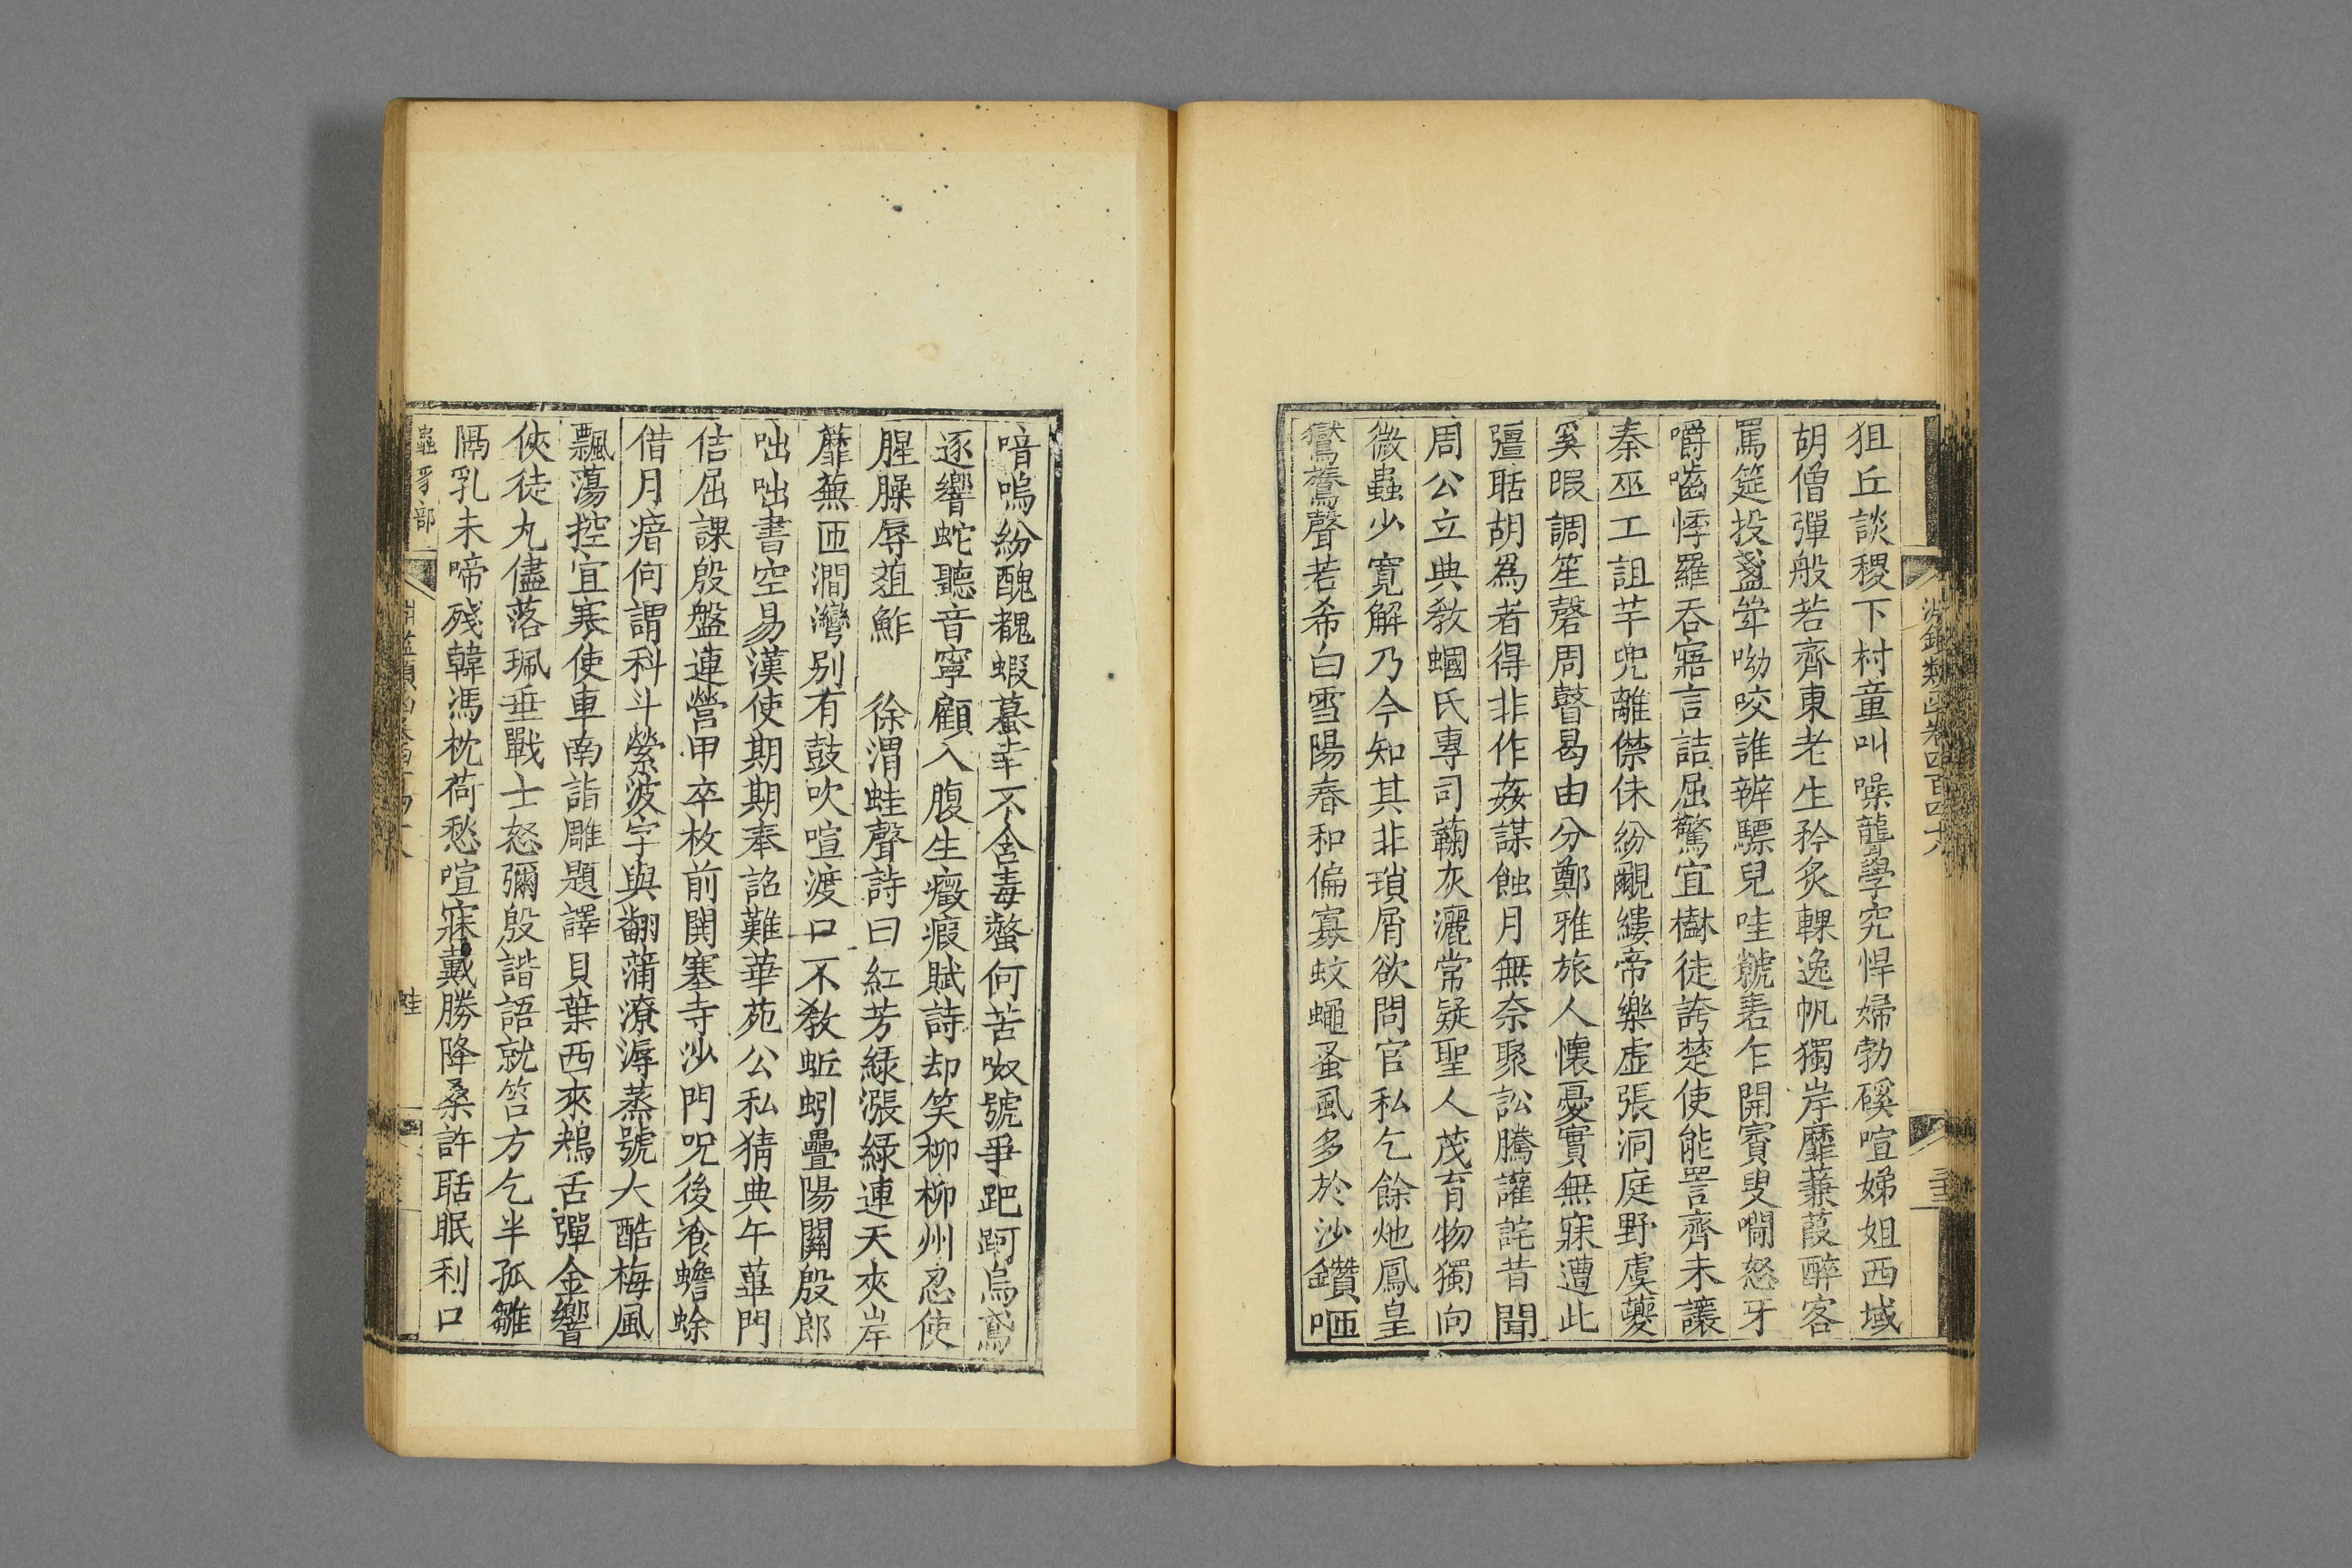 淵鑑類函卷四百四十八
狙丘談稷下村童叫噪聾學究悍婦勃磎喧娣姐西域
胡僧彈般若齊東老生矜炙輠逸帆獨岸靡蒹葭醉客
罵筵投盞斝呦咬誰辨驃兒哇虩虩乍開賓叟嘲怒牙
嚼嚙悸羅吞寤言詰屈驚宜樹徒誇楚使能詈齊未讓
秦巫工詛芊兜離僸侏紛覼縷帝樂虛張洞庭野虞夔
奚暇調笙磬周瞽曷由分鄭雅旅人懷憂實無寐遭此
彊聒胡爲者得非作姦謀蝕月無奈聚訟騰讙詫昔聞
周公立典敎蟈氏專司蘜灰灑常疑聖人茂育物獨向
微蟲少寬解乃今知其非瑣屑欲問官私乞餘灺鳳皇
鸑鷟聲若希白雪陽春和偏寡蚊蠅蚤虱多於沙鑽咂
喑嗚紛醜䫥蝦蟇幸不含毒螫何苦呶號爭跁跒烏鳶
逐響蛇聽音寧顧入腹生癥瘕賦詩却笑柳柳州忍使
腥臊辱菹鮓 徐渭蛙聲詩曰紅芳綠漲綠連天夾岸
蘼蕪匝澗灣別有鼓吹喧渡口不敎蚯蚓疊陽關殷郎
咄咄書空易漢使期期奉詔難華苑公私猜典午蓽門
佶屈課殷盤連營甲卒枚前開塞寺沙門呪後飧蟾蜍
借月瘖何謂科斗縈波字與翻蒲潦溽蒸號大酷梅風
飄蕩控宜寒使車南詣雕題譯貝葉西來鴂舌彈金響
俠徒丸儘落珮垂戰士怒彌殷諧語就笞方乞半孤雛
隔乳未啼殘韓馮枕荷愁喧寐戴勝降桑許聒眠利口
蟲豸部 蛙